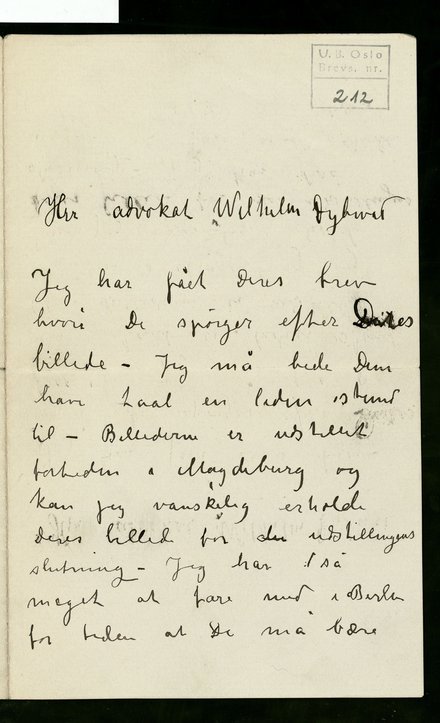 U.B. Oslo
Brevs. nr.
212
Herr advokat Wilhelm Dybwad
Jeg har fået Deres brev
hvori De spörger efter Deres
billede – Jeg må bede Dem
have taal en liden stund
til – Billederne er udstillet
forteden i Magdeburg og
kan jeg vanskelig erholde
Deres billede för udstillingens
slutning – Jeg har så
meget at fare med i Berlin
for tiden at De må bære